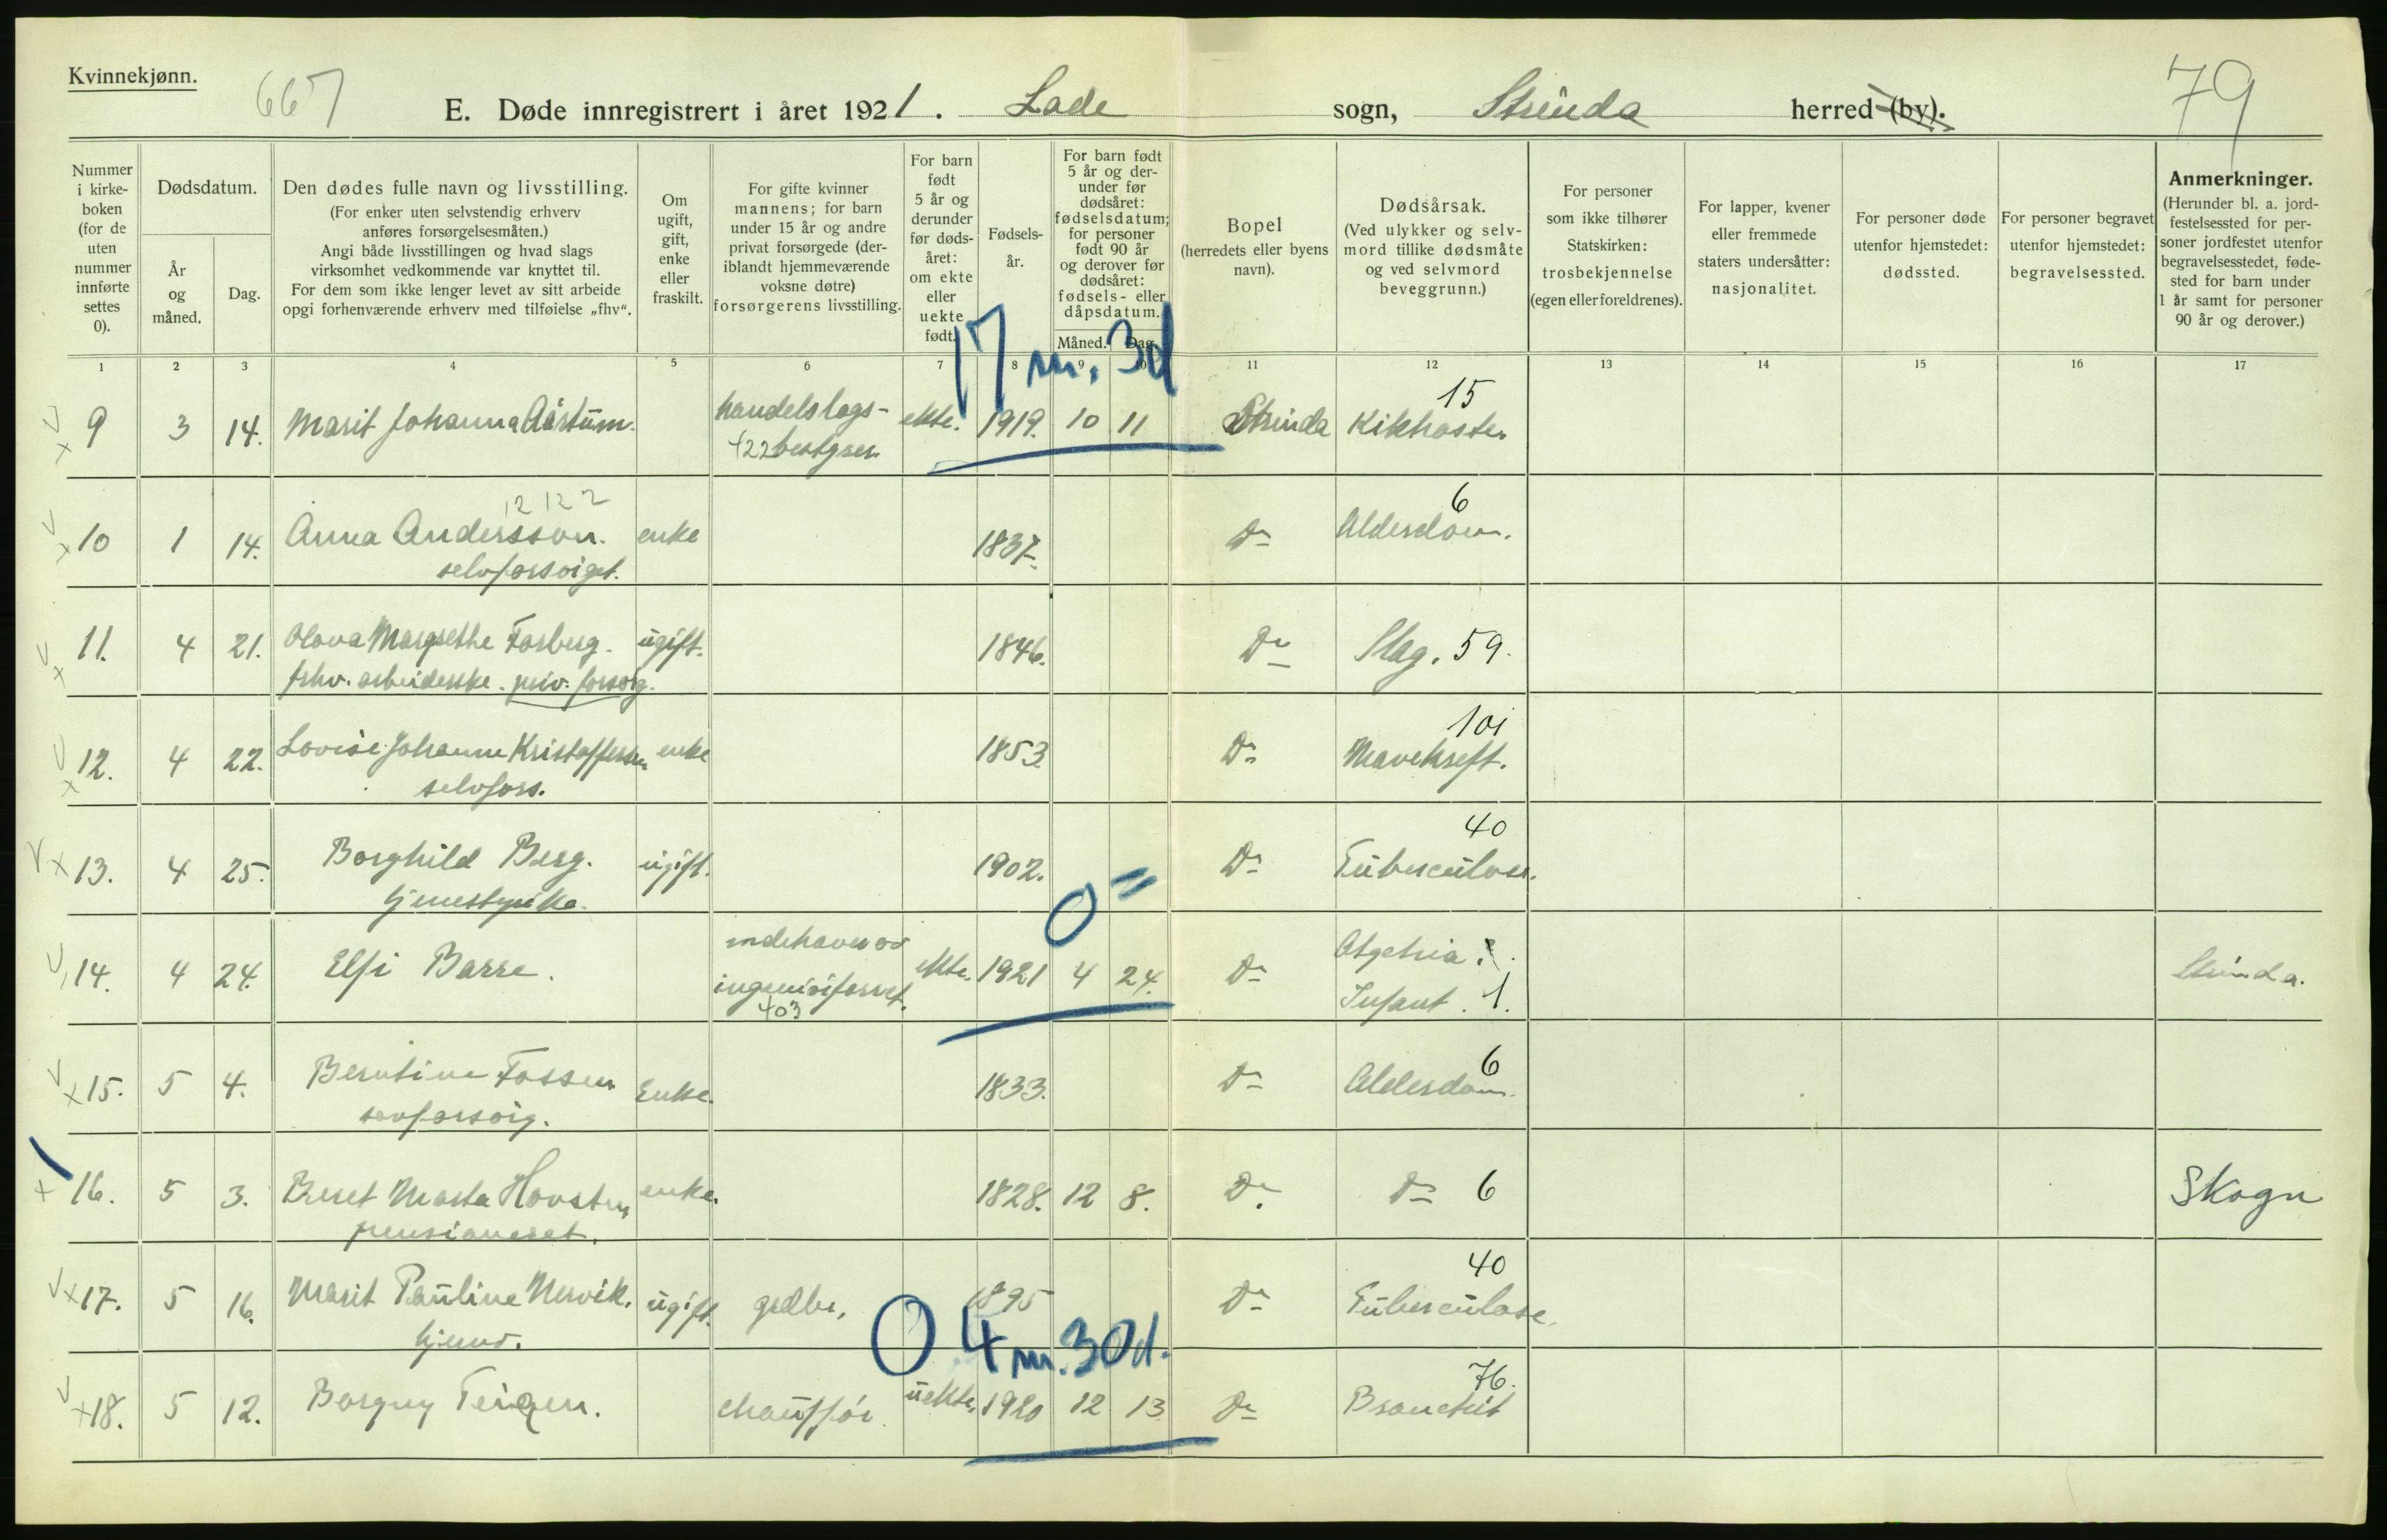 Kvinnekjønn.
667
E. Døde innregistrert i året 1921. Lade sogn, Strinda herred (by).
79
Nummer i kirke-boken (for de uten nummer innførte settes 0).
Dødsdatum.
År og måned.
Dag.
Den dødes fulle navn og livsstilling.
(For enker uten selvstendig erhverv anføres forsørgelsesmåten.)
Angi både livsstillingen og hvad slags virksomhet vedkommende var knyttet til.
For dem som ikke lenger levet av sitt arbeide opgi forhenværende erhverv med tilføielse „fhv“.
Om ugift, gift, enke eller fraskilt.
For gifte kvinner mannens; for barn under 15 år og andre privat forsørgede (der-iblandt hjemmeværende voksne døtre) forsørgerens livsstilling.
For barn født 5 år og derunder før døds-året: om ekte eller uekte født.
Fødsels-år.
For barn født 5 år og der-under før dødsåret: fødselsdatum; for personer født 90 år og derover før dødsåret: fødsels- eller dåpsdatum.
Måned. Dag.
Bopel
(herredets eller byens navn).
Dødsårsak.
(Ved ulykker og selv-mord tillike dødsmåte og ved selvmord beveggrunn.)
For personer som ikke tilhører Statskirken: trosbekjennelse (egen eller foreldrenes).
For lapper, kvener eller fremmede staters undersåtter: nasjonalitet.
For personer døde utenfor hjemstedet: dødssted.
For personer begravet utenfor hjemstedet: begravelsessted.
Anmerkninger.
(Herunder bl. a. jord-festelsessted for per-soner jordfestet utenfor begravelsesstedet, føde-sted for barn under 1 år samt for personer 90 år og derover.)
1 2 3 4 5 6 7 8 9 10 11 12 13 14 15 16 17
17 m. 3d
9 3 14. Marit Johanna Aårtum. handelslags- ekte. 1919. 10 11 Strinda Kikhoste. 15
422 bestyrer
12 12 2
10 1 14. Anna Andersson. enke 1837. Do Alderdom. 6
selvforsørget.
11. 4 21. Olava Margrethe Forberg. ugift. 1846. Do Slag. 59.
fhv. arbeiderske. priv. forsørg.
12. 4 22. Lovise Johanne Kristoffersen enke 1853. Do Mavekreft. 101
selvfors.
13. 4 25. Borghild Berg. ugift. 1902. Do Tuberculose. 40
tjenestepike.
0 =
14. 4 24. Elfi Barre. indehaver av ekte. 1921 4 24. Do Infant. 1. Strinda.
403
15. 5 4. Berntine Fossen Enke. 1833. Do Alderdom. 6
16. 5 3. Beret Marta Hovsten enke. 1828. 12 8. Do. Do 6 Skogn
pensioneret.
17. 5 16. Marit Pauline Nervik. ugift. grdbr. 1895 Do Tuberculose. 40
tjener.
0 4 m. 30d.
18. 5 12. Borgny Teigen. chauffør. uekte. 1920 12 13 Do Bronchit 76.